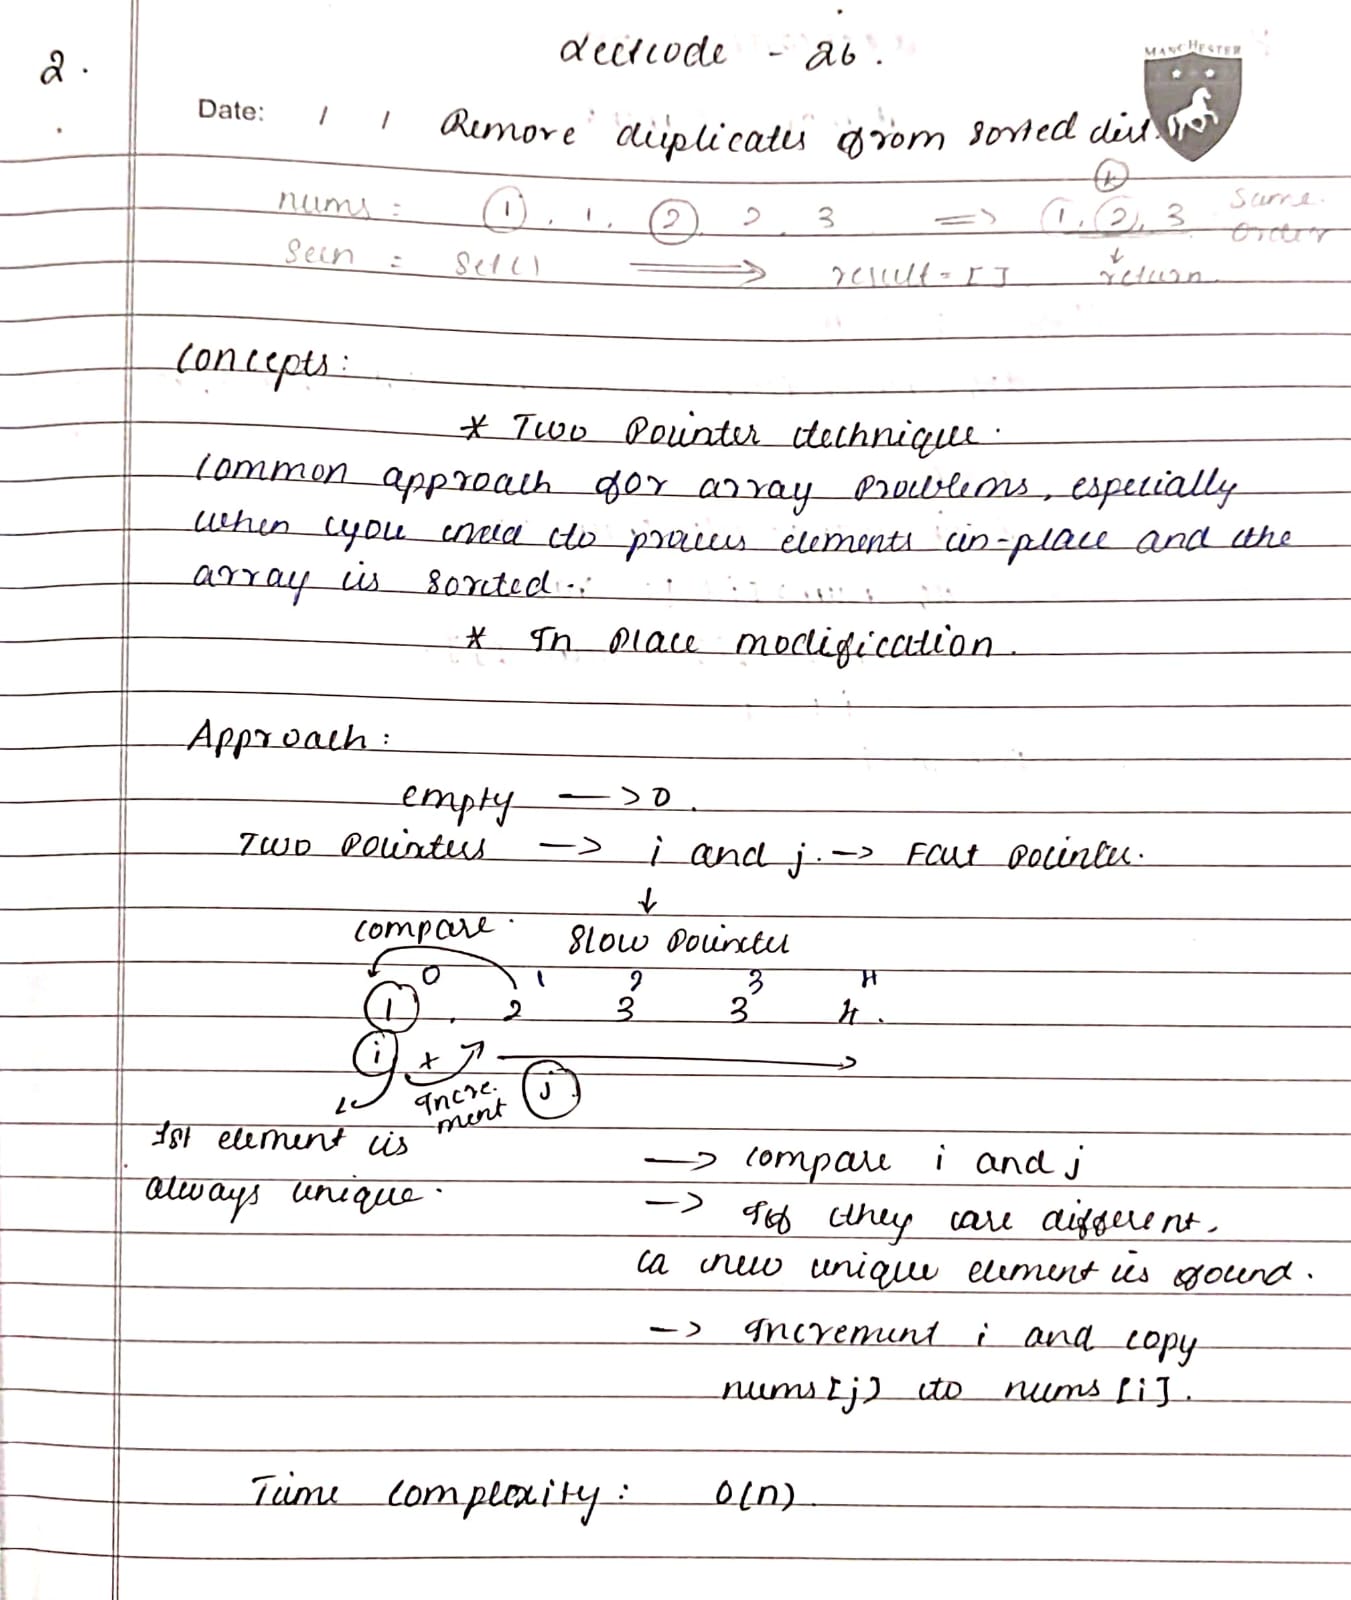 2.
Leetcode - 26.
MANCHESTER
Date: / / Remove duplicates from sorted list.
k
nums = 1, 1, 2, 2, 3 => 1, 2, 3 same order
seen = set() => result = [] ↓ return
Concepts:
* Two Pointer technique.
Common approach for array problems, especially
when you need to process elements in-place and the
array is sorted.
* In place modification.
Approach:
empty -> 0.
Two pointers -> i and j. -> Fast pointer.
↓
compare. Slow pointer
0 1 2 3 4
1 . 2 3 3 4.
i + j
Increment
1st element is
always unique.
-> compare i and j
-> If they are different,
a new unique element is found.
-> Increment i and copy
nums[j] to nums[i].
Time complexity: O(n).